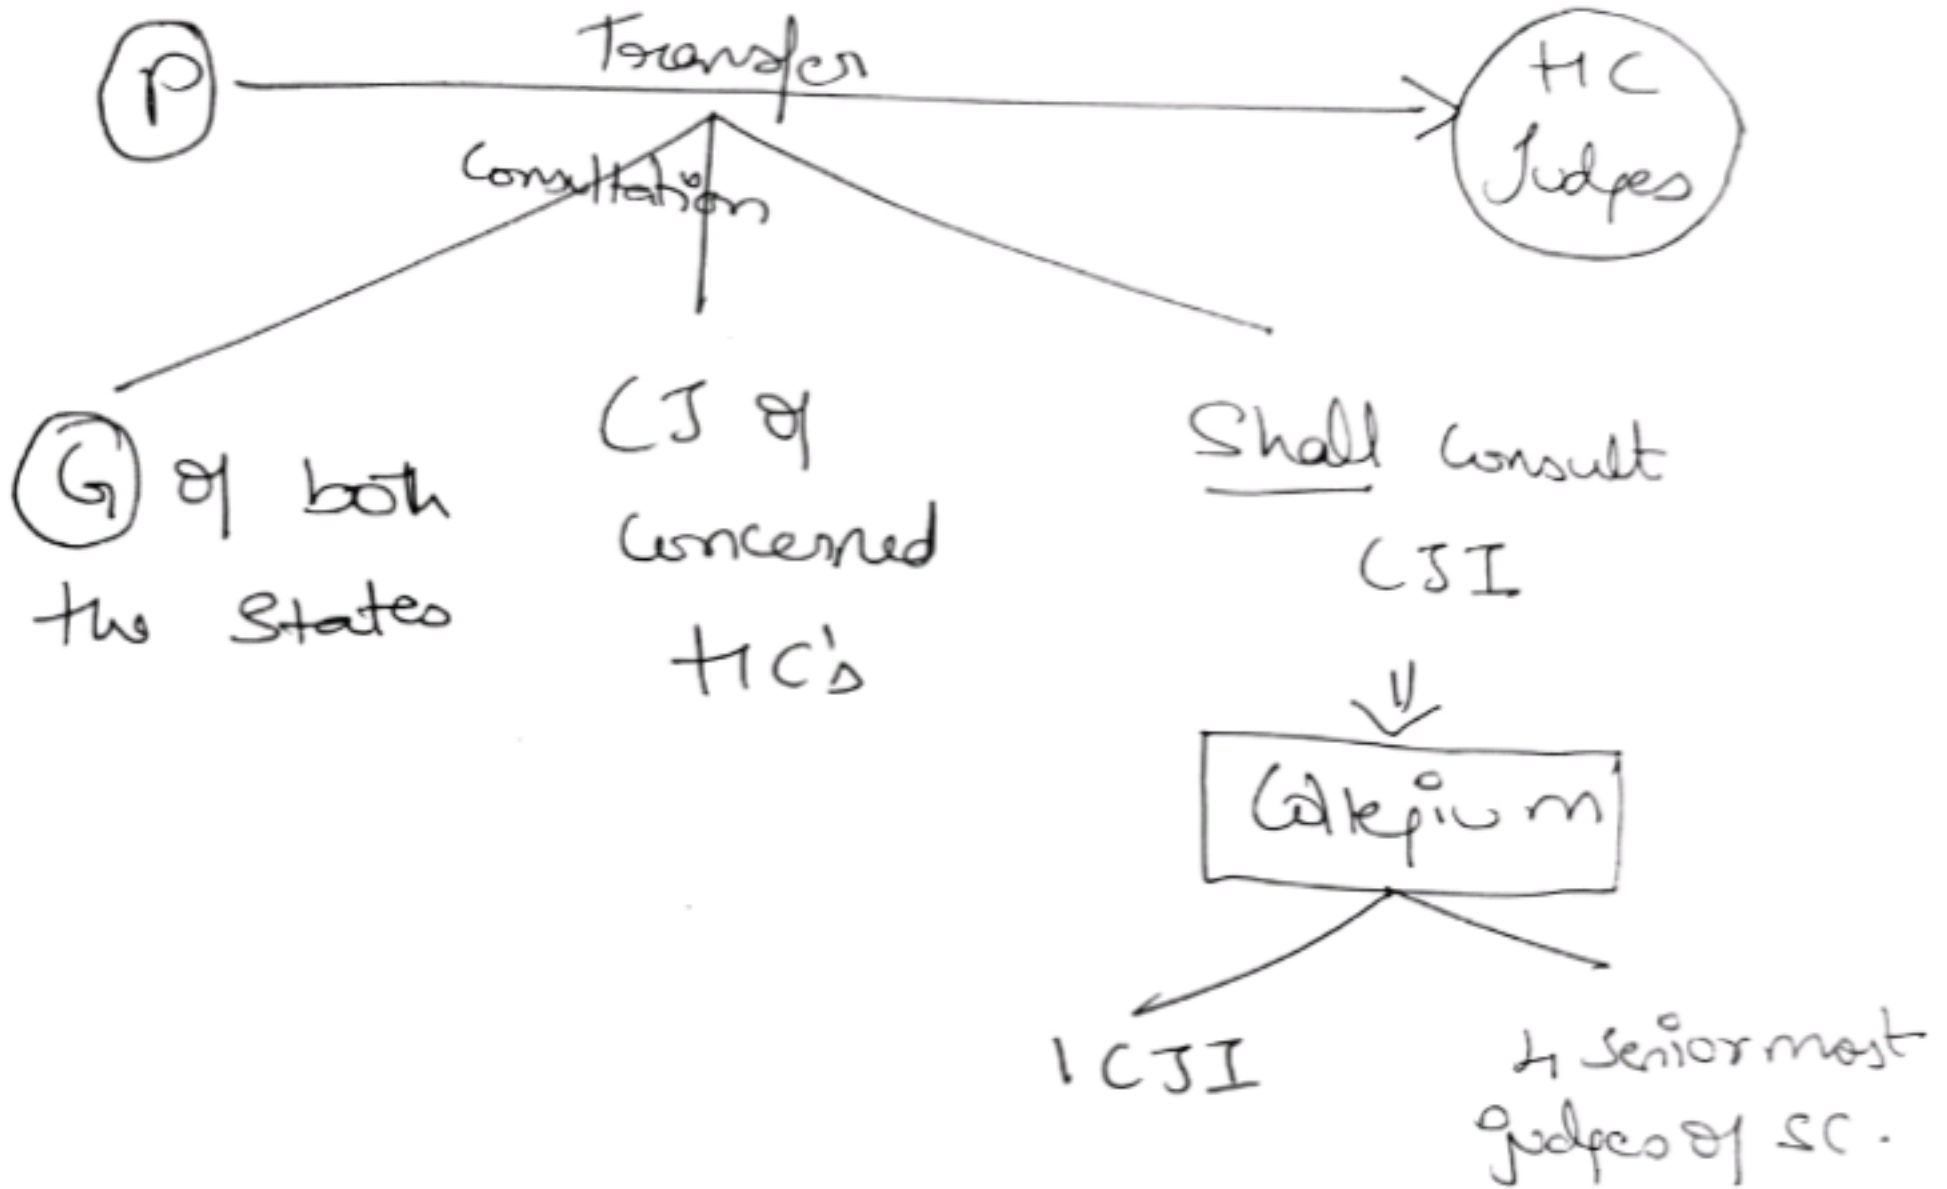 P
Transfer
HC
Judges
Consultation
G of both
the States
CJ of
Concerned
HC's
Shall Consult
CJI
Collegium
1 CJI
4 Senior most
judges of SC.